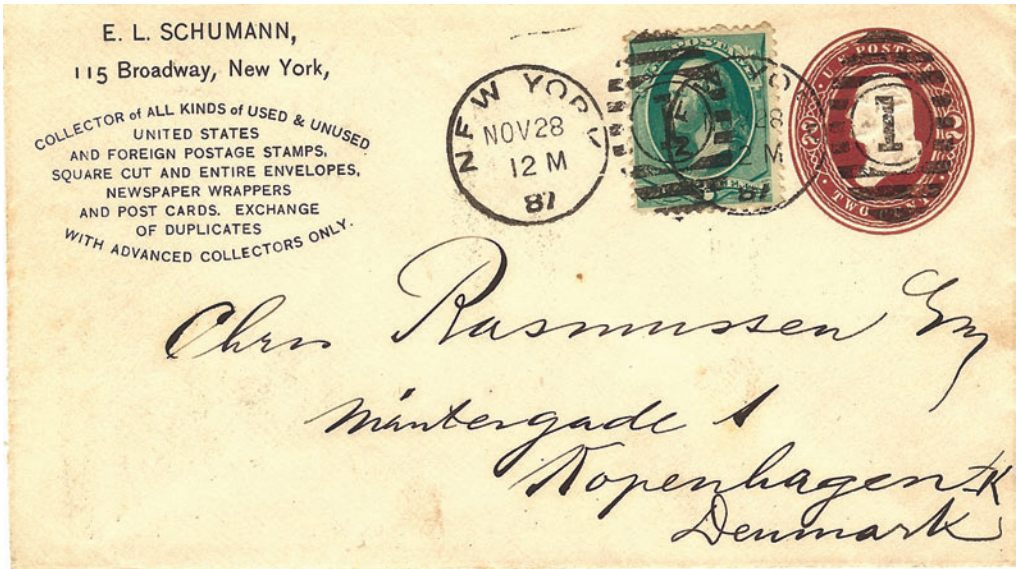 E. L. SCHUMANN,
115 Broadway, New York,
COLLECTOR of ALL KINDS of USED & UNUSED
UNITED STATES
AND FOREIGN POSTAGE STAMPS,
SQUARE CUT AND ENTIRE ENVELOPES,
NEWSPAPER WRAPPERS
AND POST CARDS. EXCHANGE
OF DUPLICATES
WITH ADVANCED COLLECTORS ONLY.
NEW YORK
NOV 28
12 M
87
1
U.S. POSTAGE
TWO
1
Chris Rasmussen Esq
Mäntergade 1
Kopenhagen K
Denmark